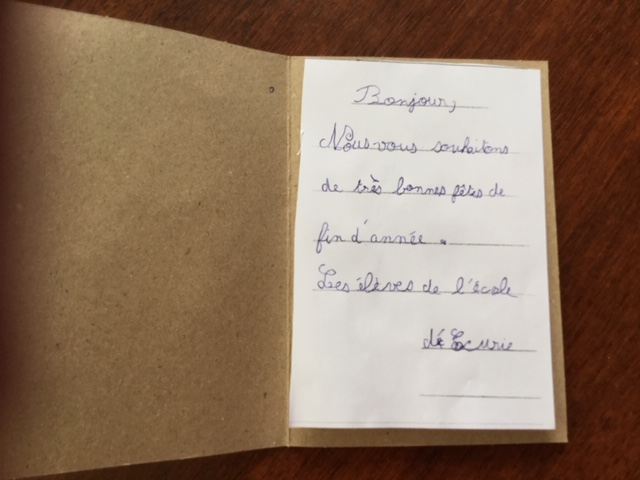 Bonjour,
Nous vous souhaitons
de très bonnes fêtes de
fin d'année.
Les élèves de l'école
d'Ecurie